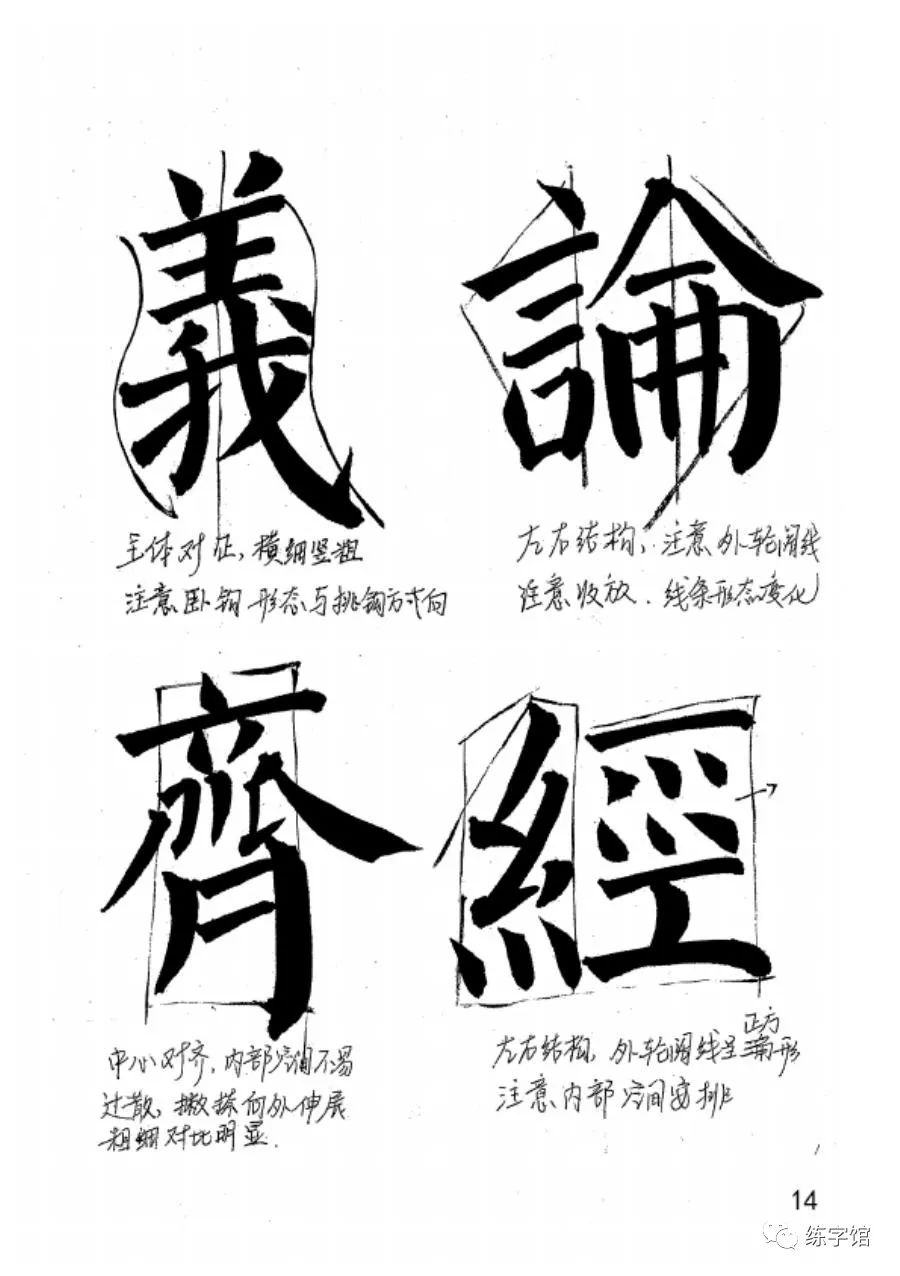 義
論
主体对正，横细竖粗
注意卧钩形态与挑钩方式向
左右结构，注意外轮阔线
注意收放．线条形态变化
齊
經
中心对齐，内部空间不易
过散，撇捺向外伸展
粗细对比明显．
左右结构，外轮阔线呈正方形
注意内部空间安排
14
练字馆